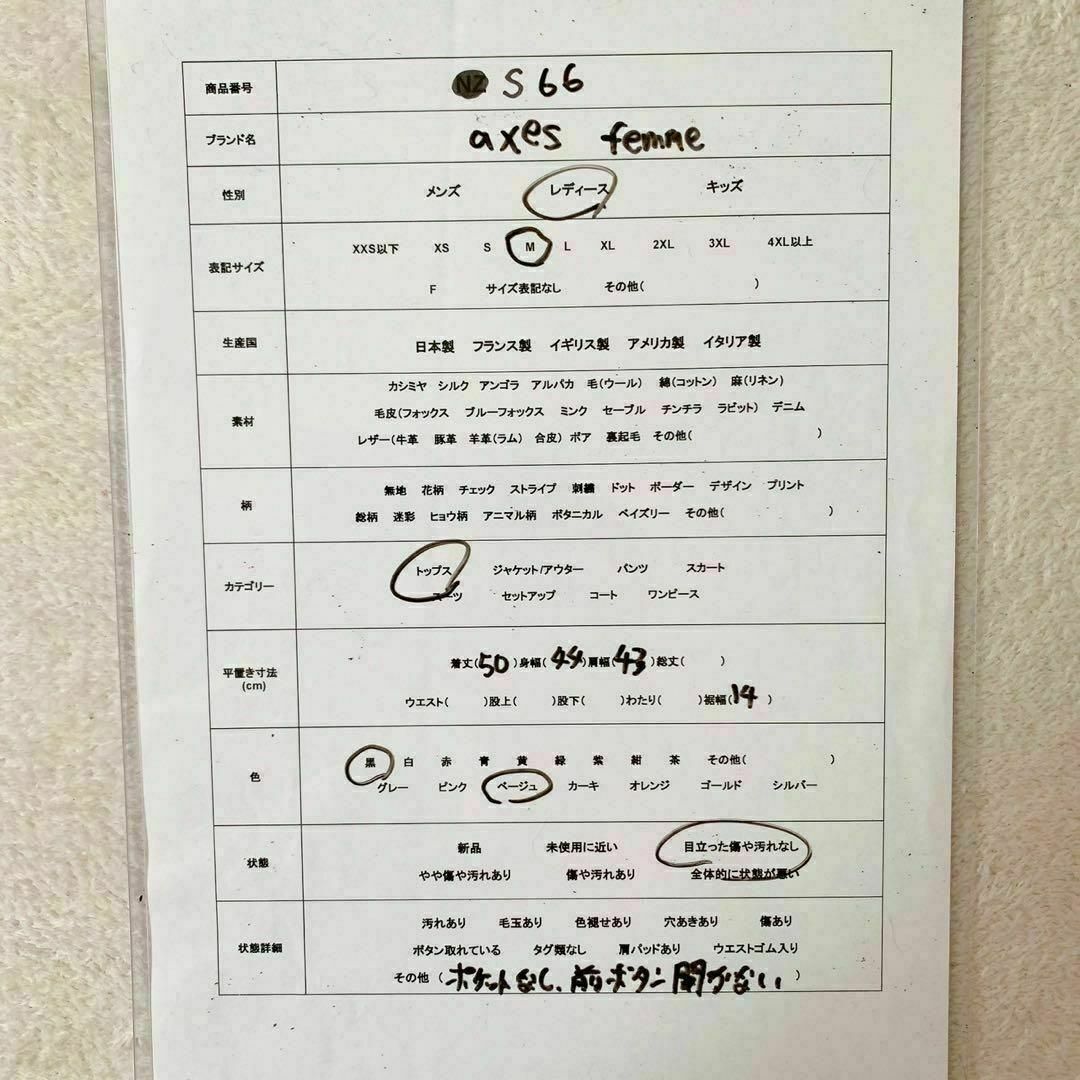 商品番号 NZ S66
ブランド名 axes femme
性別 メンズ レディース キッズ
表記サイズ XXS以下 XS S M L XL 2XL 3XL 4XL以上
F サイズ表記なし その他( )
生産国 日本製 フランス製 イギリス製 アメリカ製 イタリア製
素材 カシミヤ シルク アンゴラ アルパカ 毛(ウール) 綿(コットン) 麻(リネン)
毛皮(フォックス ブルーフォックス ミンク セーブル チンチラ ラビット) デニム
レザー(牛革 豚革 羊革(ラム) 合皮) ボア 裏起毛 その他( )
柄 無地 花柄 チェック ストライプ 刺繍 ドット ボーダー デザイン プリント
総柄 迷彩 ヒョウ柄 アニマル柄 ボタニカル ペイズリー その他( )
カテゴリー トップス ジャケット/アウター パンツ スカート
スーツ セットアップ コート ワンピース
平置き寸法 (cm) 着丈(50)身幅(44)肩幅(43)総丈( )
ウエスト( )股上( )股下( )わたり( )裾幅(14 )
色 黒 白 赤 青 黄 緑 紫 紺 茶 その他( )
グレー ピンク ベージュ カーキ オレンジ ゴールド シルバー
状態 新品 未使用に近い 目立った傷や汚れなし
やや傷や汚れあり 傷や汚れあり 全体的に状態が悪い
状態詳細 汚れあり 毛玉あり 色褪せあり 穴あきあり 傷あり
ボタン取れている タグ類なし 肩パッドあり ウエストゴム入り
その他 (ポケットなし、前ボタン開かない )